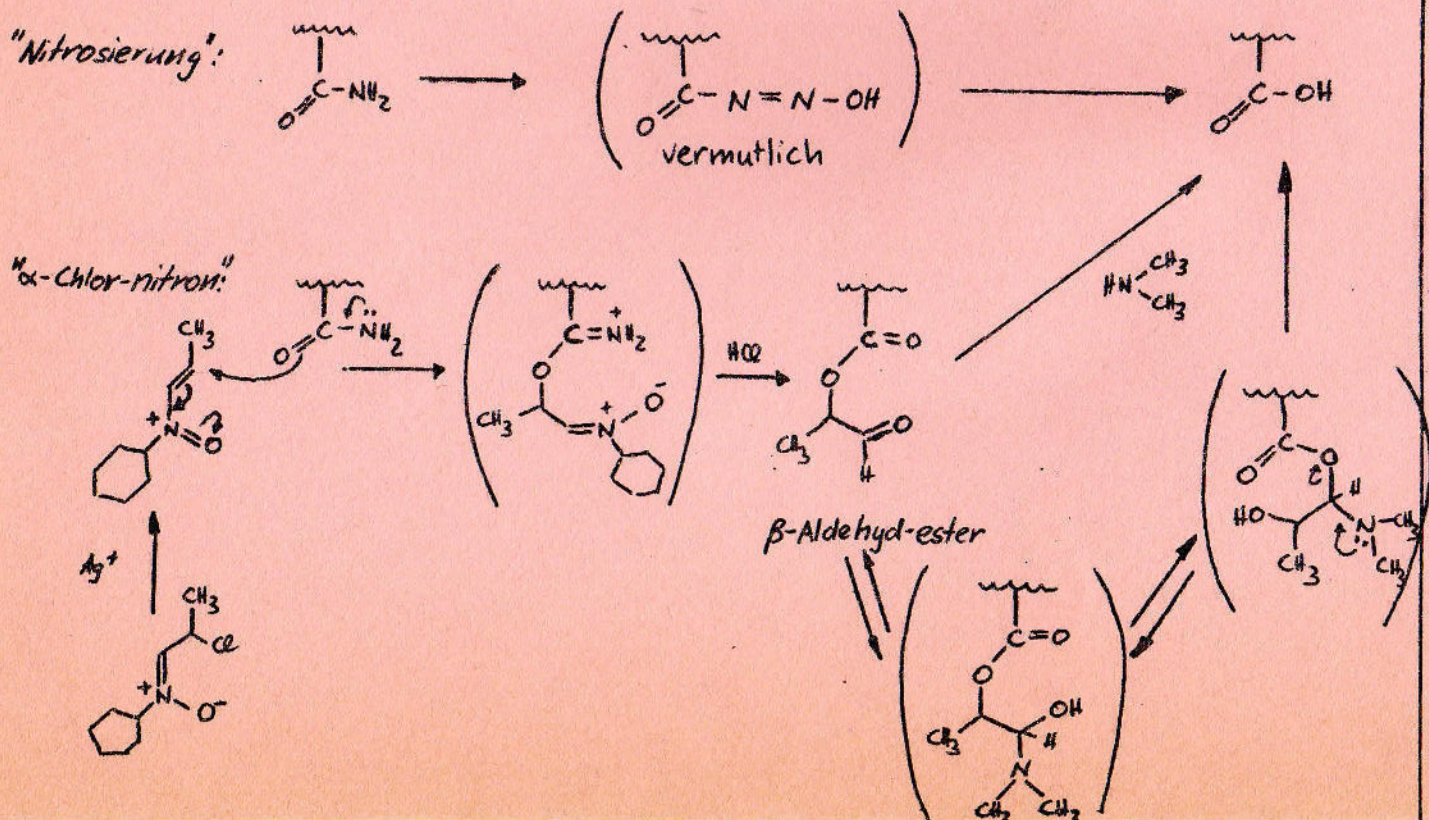 "Nitrosierung":
C-NH2
O
C-N=N-OH
O
vermutlich
C-OH
O
"α-Chlor-nitron:"
CH3
+N=O
C-N̈H2
O
C=N+H2
O
CH3
N+
O-
HCl
C=O
O
CH3
O
H
β-Aldehyd-ester
HN
CH3
CH3
Ag+
CH3
Cl
+N
O-
C=O
O
OH
CH3
H
N
CH3
CH3
C
O
O
H
HO
N-CH3
CH3
CH3